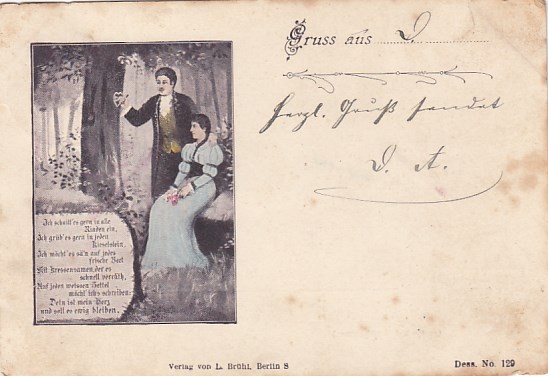 Gruss aus D.
Herzl. Gruß sendet
D. A.
Ich schnitt'es gern in alle
Rinden ein,
Ich grüb'es gern in jeden
Kieselstein,
Ich möcht'es sä'n auf jedes
frische Beet
Mit Kressensamen, der es
schnell verräth,
Auf jeden weissen Zettel
möcht ich's schreiben:
Dein ist mein Herz
und soll es ewig bleiben.
Verlag von L. Brühl, Berlin S
Dess. No. 129